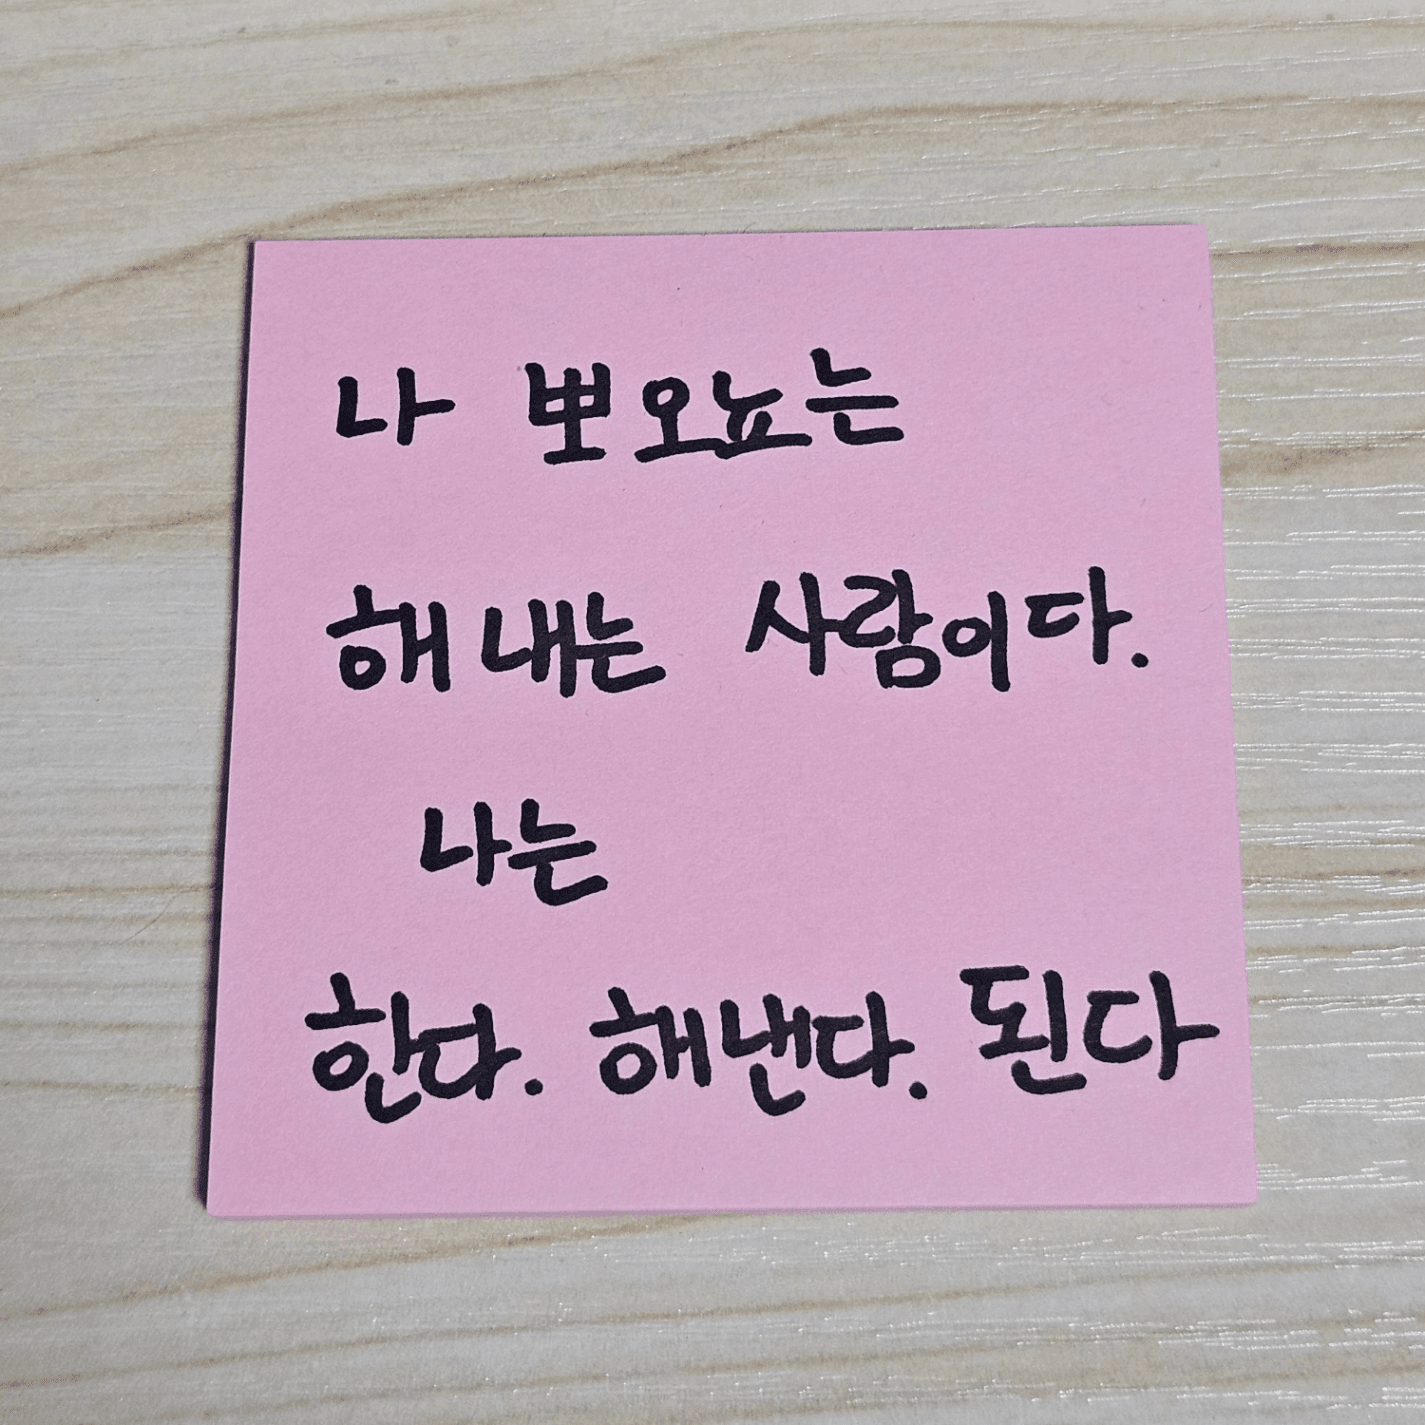 나 뽀오뇨는
해내는 사람이다.
나는
한다. 해낸다. 된다